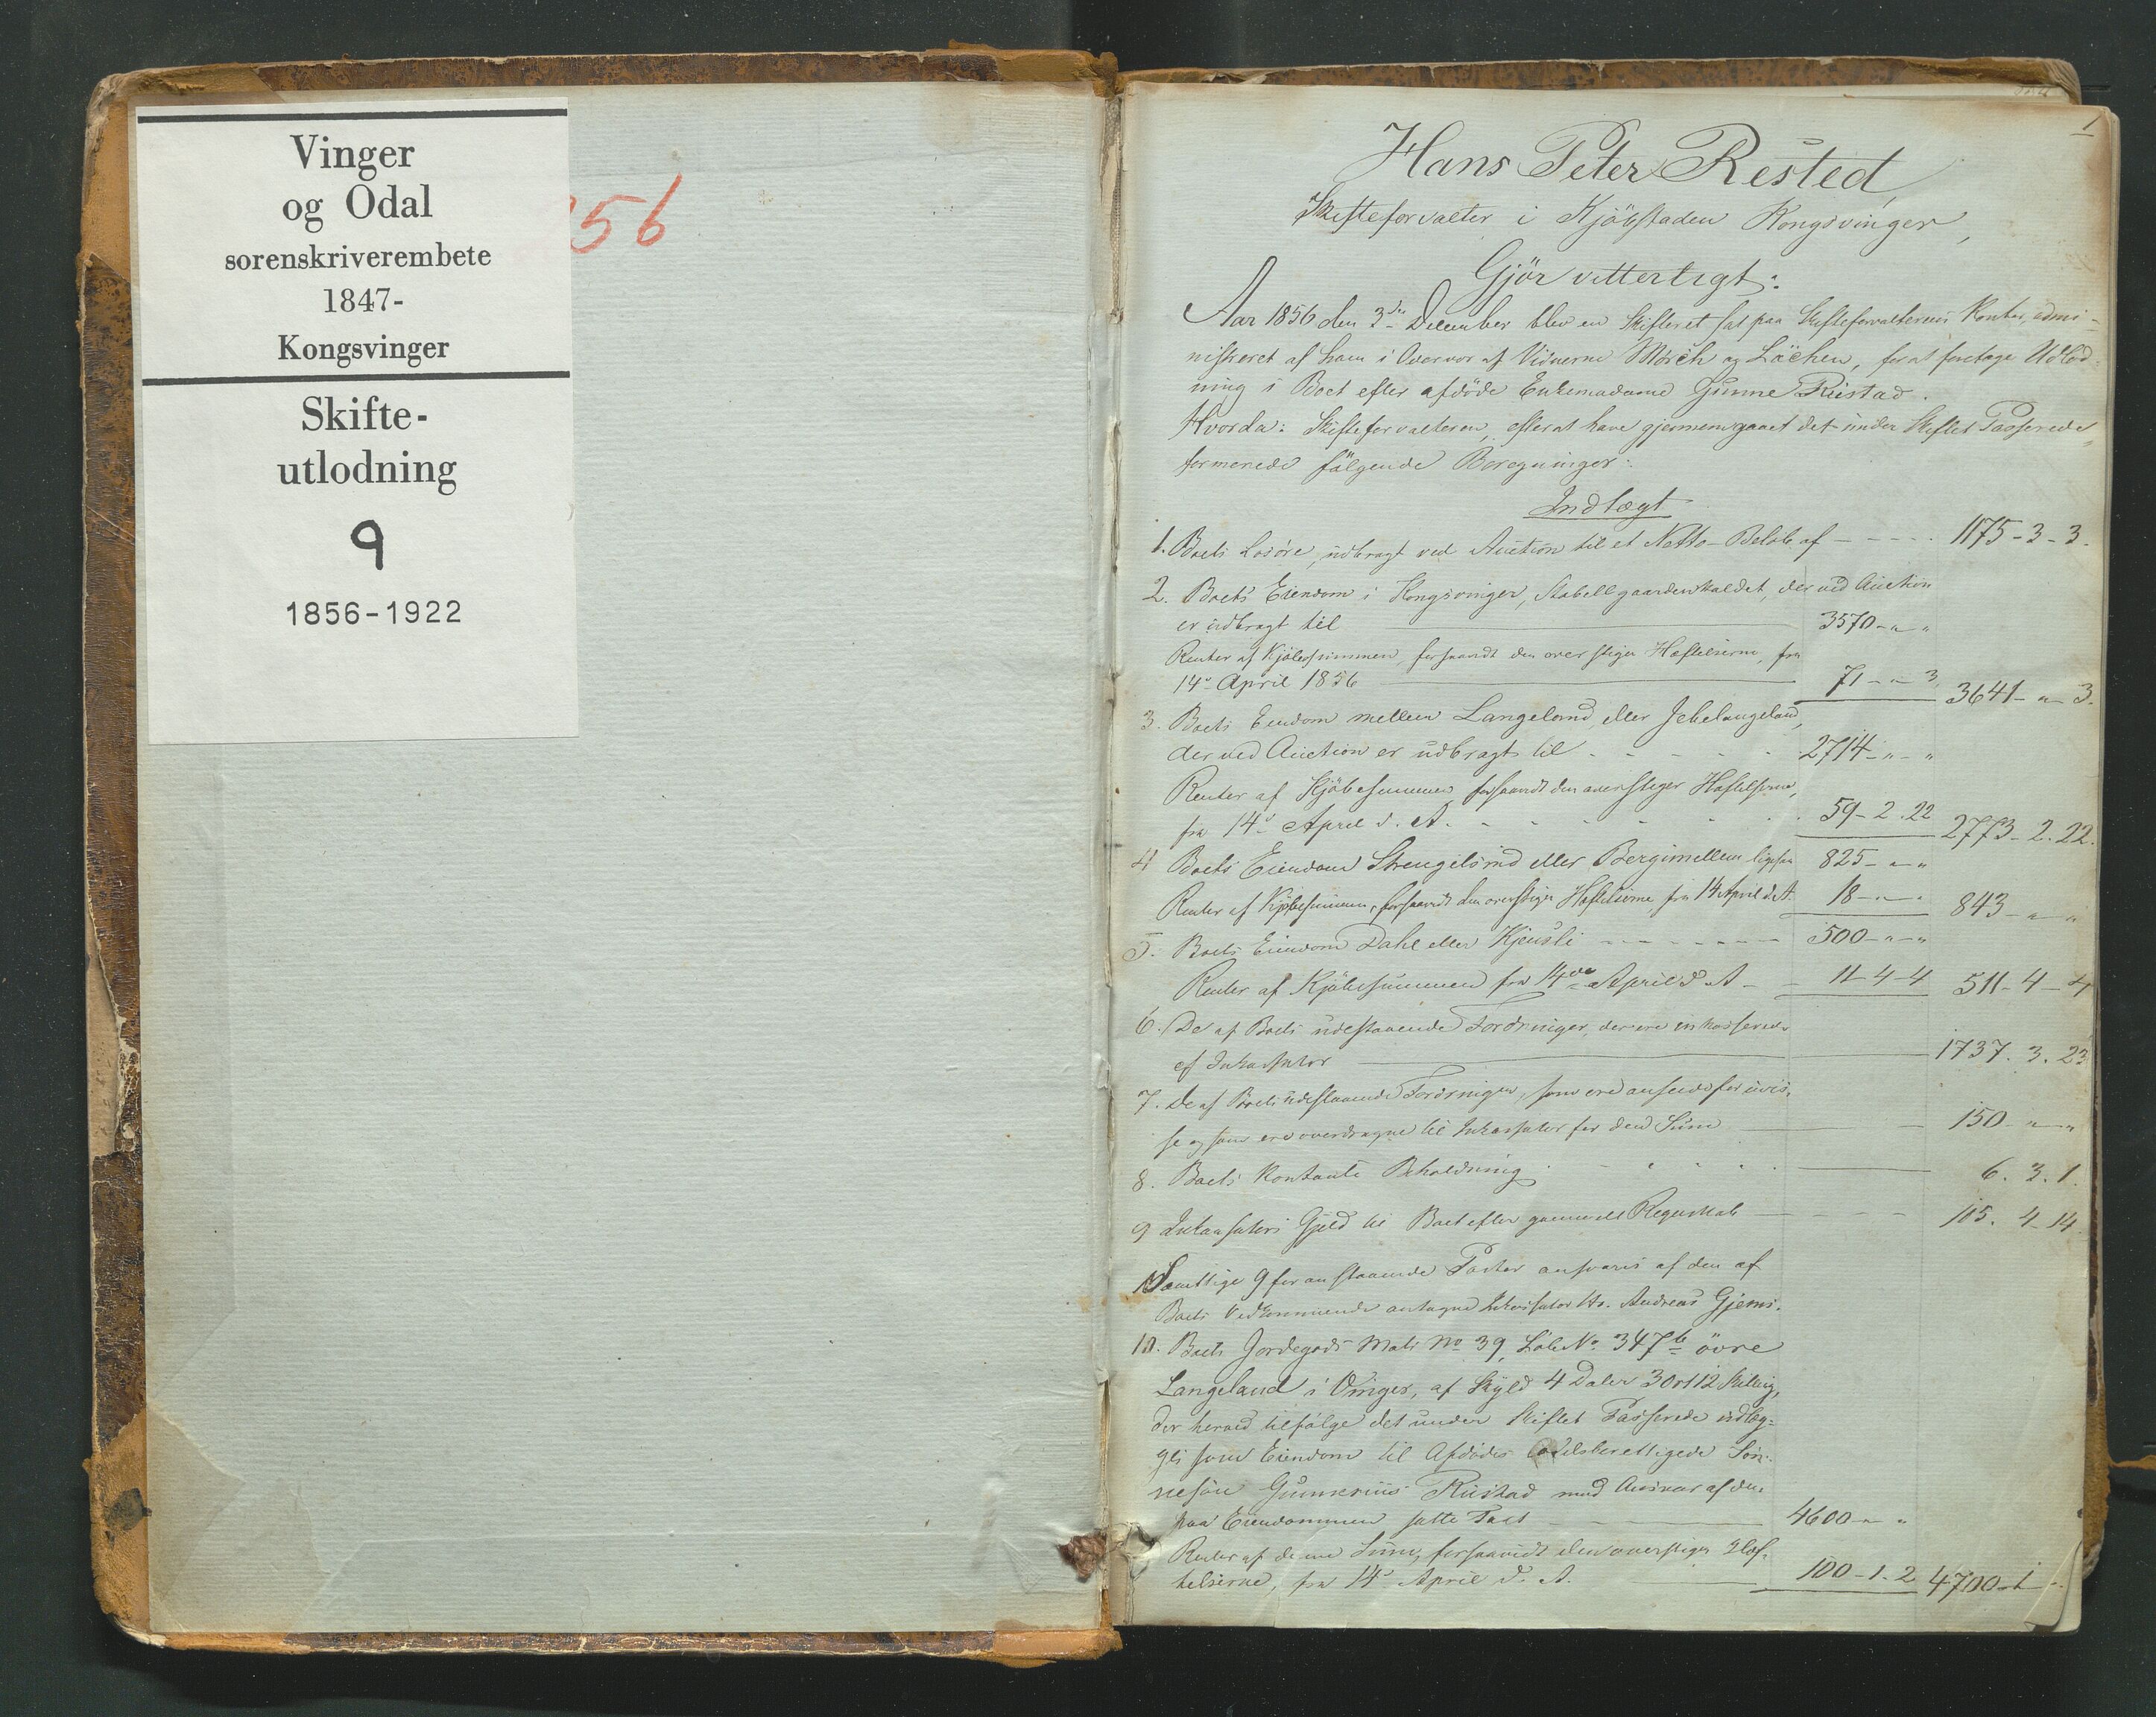 Vinger
og Odal
sorenskriverembete
1847-
Kongsvinger
Skifte-
utlodning
9
1856-1922
56
1
Hans Peter Rested,
Skifteforvalter i Kjöbstaden Kongsvinger,
Gjör vitterligt:
Aar 1856 den 3die December blev en Skifteret sat paa Skifteforvalterens Kontor, admi-
nistreret af ham i Overvær af Vidnerne Mörch og Löchen, for at foretage Udlod-
ning i Boet efter afdöde Enkemadame Gunne Rüstad.
Hvorda: Skifteforvalteren, efter at have gjennemgaaet det under Skiftet Passerede,
formerede fölgende Beregninger:
Indtægt
1. Boets Lösöre, udbragt ved Auction til et Netto-Belöb af - - - - 1175-3-3.
2. Boets Eiendom i Kongsvinger, Stabellgaarden kaldet, der ved Auction
er udbragt til 3570-"-"
Renter af Kjöbesummen, forsaavidt den overstiger Hæftelserne, fra
14de April 1856 71-"-3 3641-"-3.
3. Boets Eiendom mellem Langeland, eller Jebelangeland,
der ved Auction er udbragt til - - - - - 2714-"-"
Renter af Kjöbesummen forsaavidt den overstiger Hæftelserne,
fra 14de April d. A. - - - - - - 59-2.22 2773-2.22.
4 Boets Eiendom Strengelsrud eller Bergimellem ligesaa 825-"-"
Renter af Kjöbesummen, forsaavidt den overstiger Hæftelserne, fra 14 April d. A. 18-"-" 843-"-"
5. Boets Eiendom Dahl eller Kjensli - - - - - - - 500-"-"
Renter af Kjöbesummen fra 14de April d. A - - 11-4-4 511-4-4
6. De af Boets udestaaende Fordringer, der ere inkasserede
af Inkassator 1737. 3. 23
7. De af Boets udestaaende Fordringer, som ere ansete for uvis-
se og som ere overdragne til Inkassator for den Sum 150-"-"
8. Boets kontante Beholdning 6. 3. 1.
9 Inkassators Gjeld til Boet efter gammelt Regnskab 115. 4-14.
Samtlige 9 foranstaaende Poster ansvares af den af
Boets Vedkommende antagne Inkassator Hr. Andreas Gjems.
10. Boets Jordegods Matr No 39, Löb No. 347b övre
Langeland i Vinger, af Skyld 4 Daler 3 Ort 12 Skilling,
der herved tilfölge det under Skiftet Passerede udlæg-
ges som Eiendom til Afdödes odelsberettigede Sön-
nesön Gunnerius Rüstad med Ansvar af den
paa Eiendommen satte Taxt 4600-"-"
Renter af denne Sum, forsaavidt den overstiger Hæf-
telserne, fra 14de April d. A. 100-1.2 4700-1-